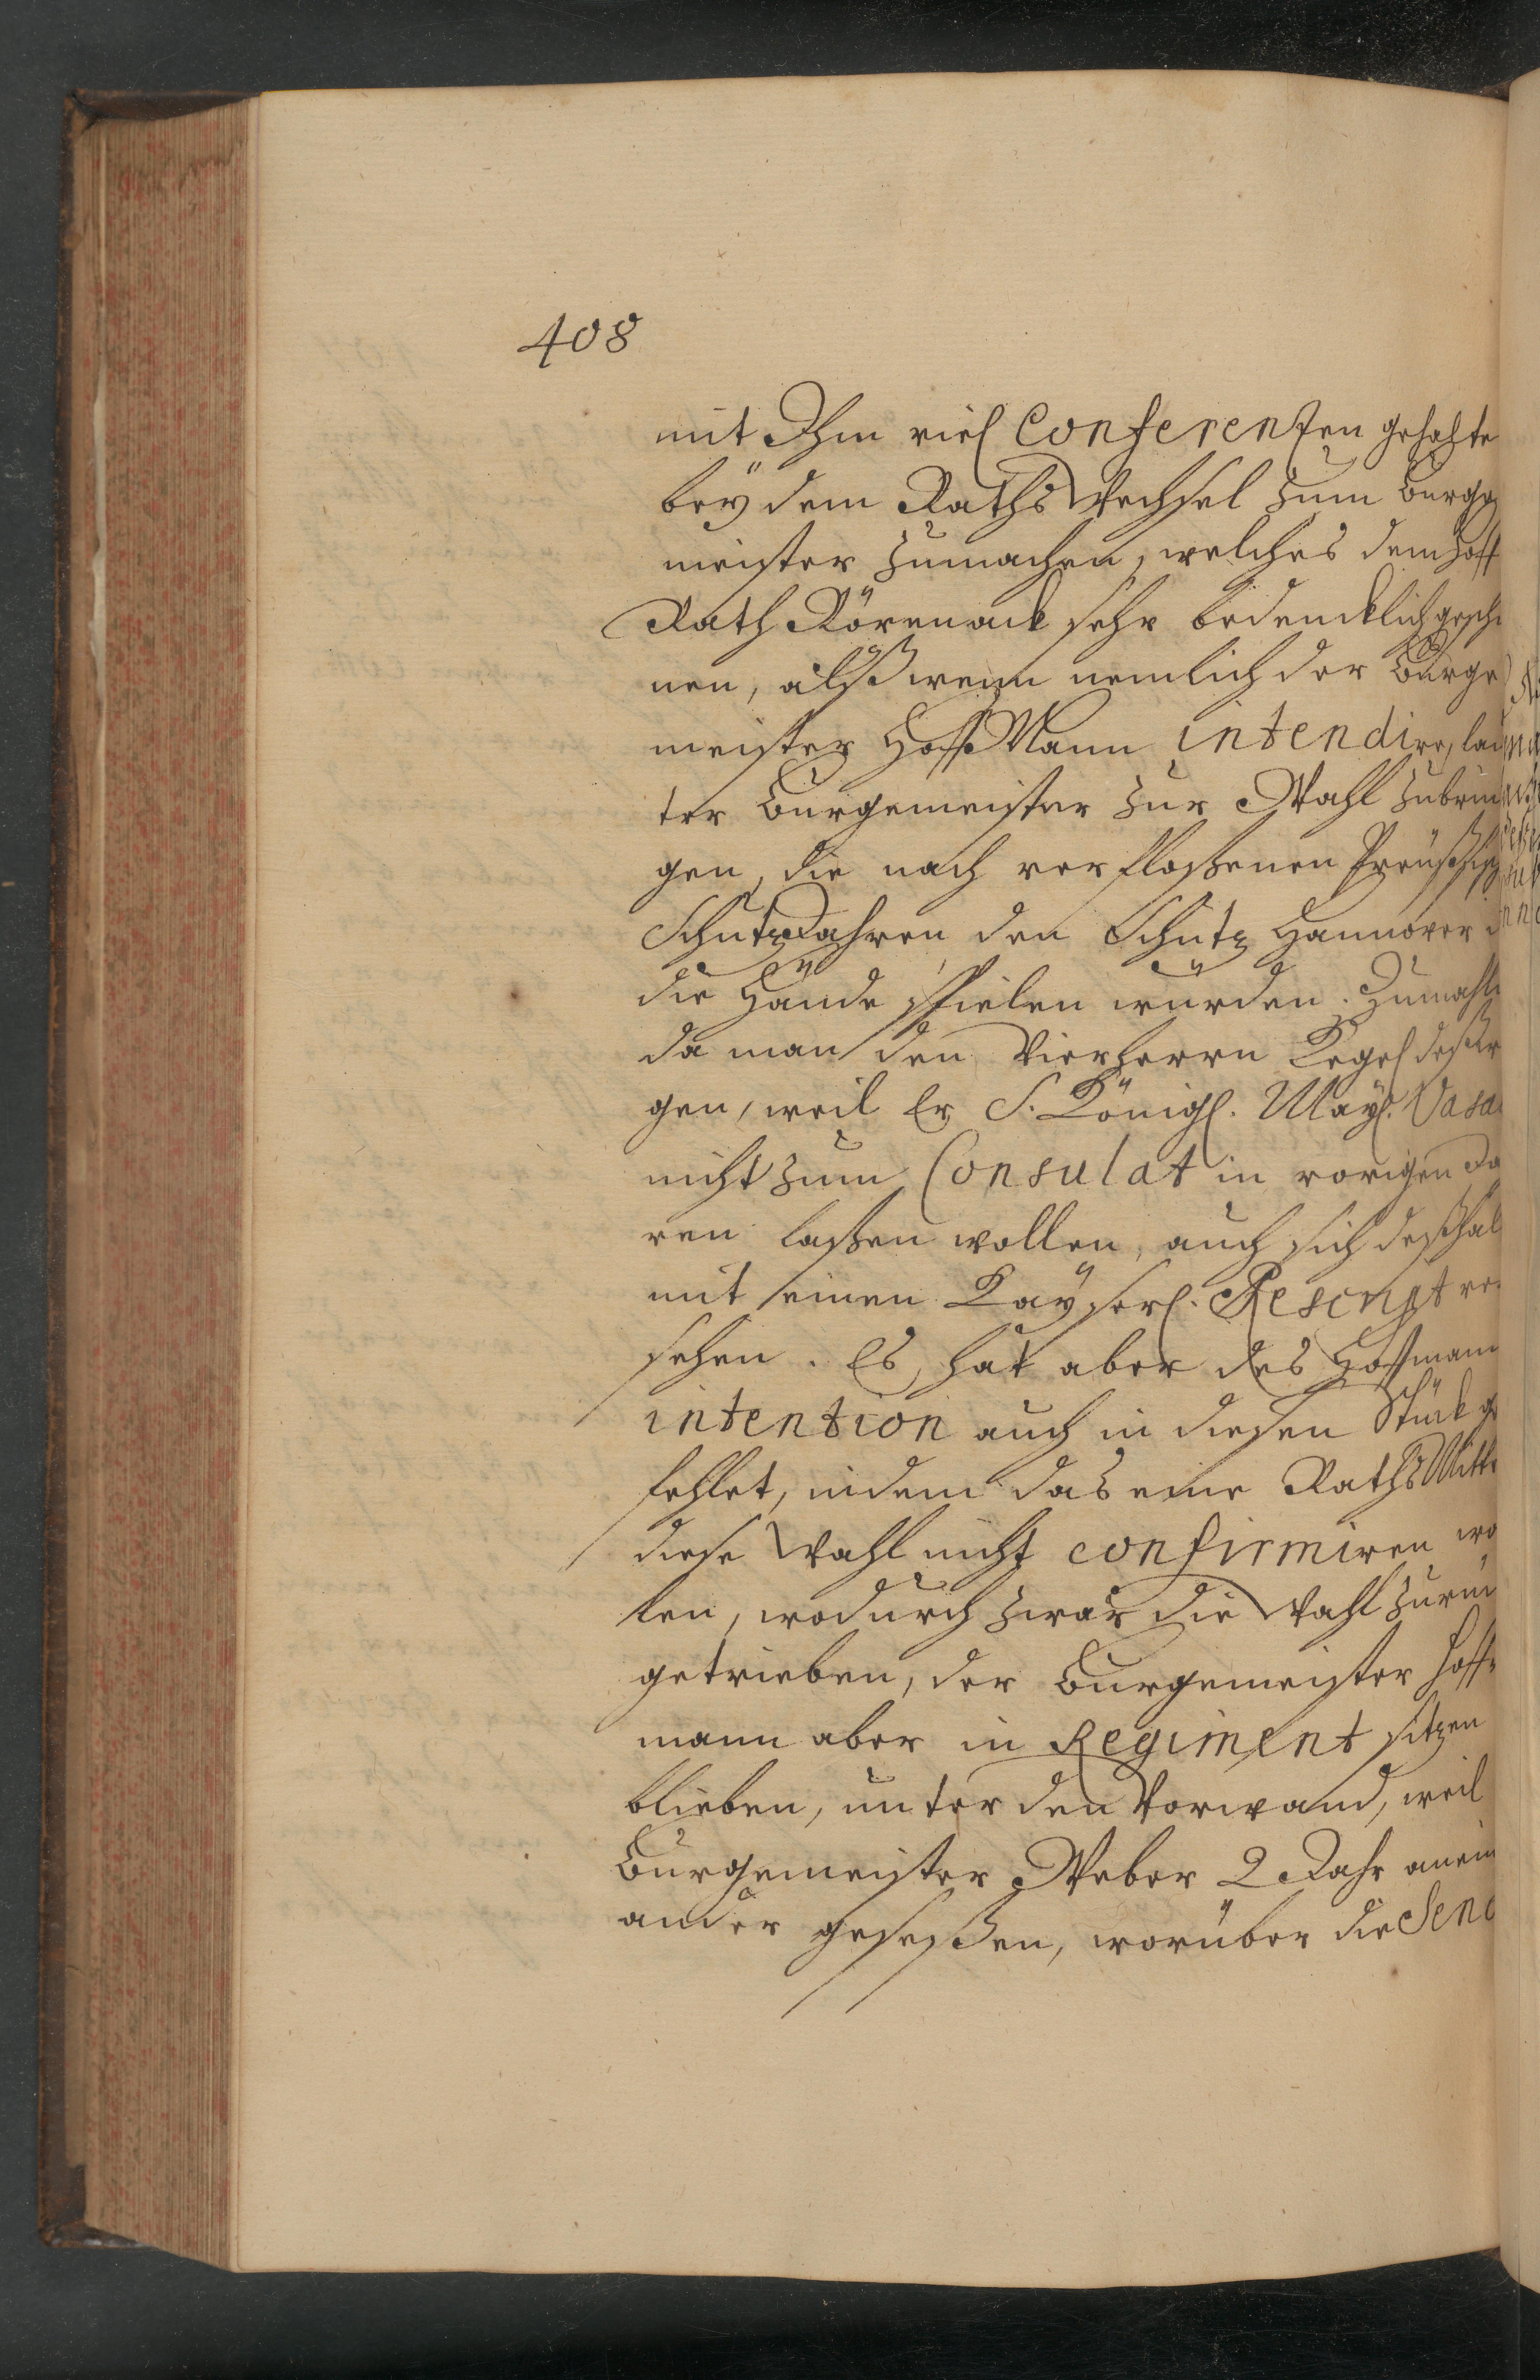 408
mit Ihm viel Conferentzen gehalte
bëy dem Raths Wechsel zum Burge
meister zumachen, welches dem Hoff
Rath Rörenack sehr bedencklich gesch
nen, alß wenn nemlich der Burge
meister Hoff Mann intendire, lau
ter Burgemeister zur Wahl zubrin
gen, die nach verfloßenen Preußisch
Schutz Jahren den Schutz Hannover
die Hände spielen würden. Zumahl
da man den Vierherrn Kegel deßwe
gen, weil Er S. Königl. Maÿ. Vasa
nicht zum Consulat in vorigen Ja
ren laßen wollen, auch sich deßhal
mit einen Kaÿserl. Rescript ve
sehen. Es hat aber des Hoffmann
intention auch in diesen Stück ge
fehlet, indem das eine Raths Mitt
diese Wahl nicht confirmiren wo
len, wodurch zwar die Wahl zurü
getrieben, der Burgemeister Hoff-
mann aber in Regiment sitzen
blieben, unter den Vorwand, weil
Burgemeister Weber 2 Jahr anein
ander geseßen, worüber die Sena